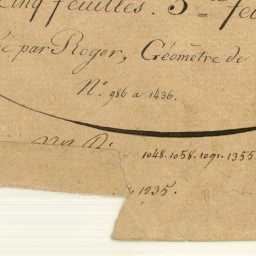 Cinq feuilles. 3.
par Roger, Géomètre de
N.º 986 a 1436.
1048. 1058. 1091. 1355
1235.